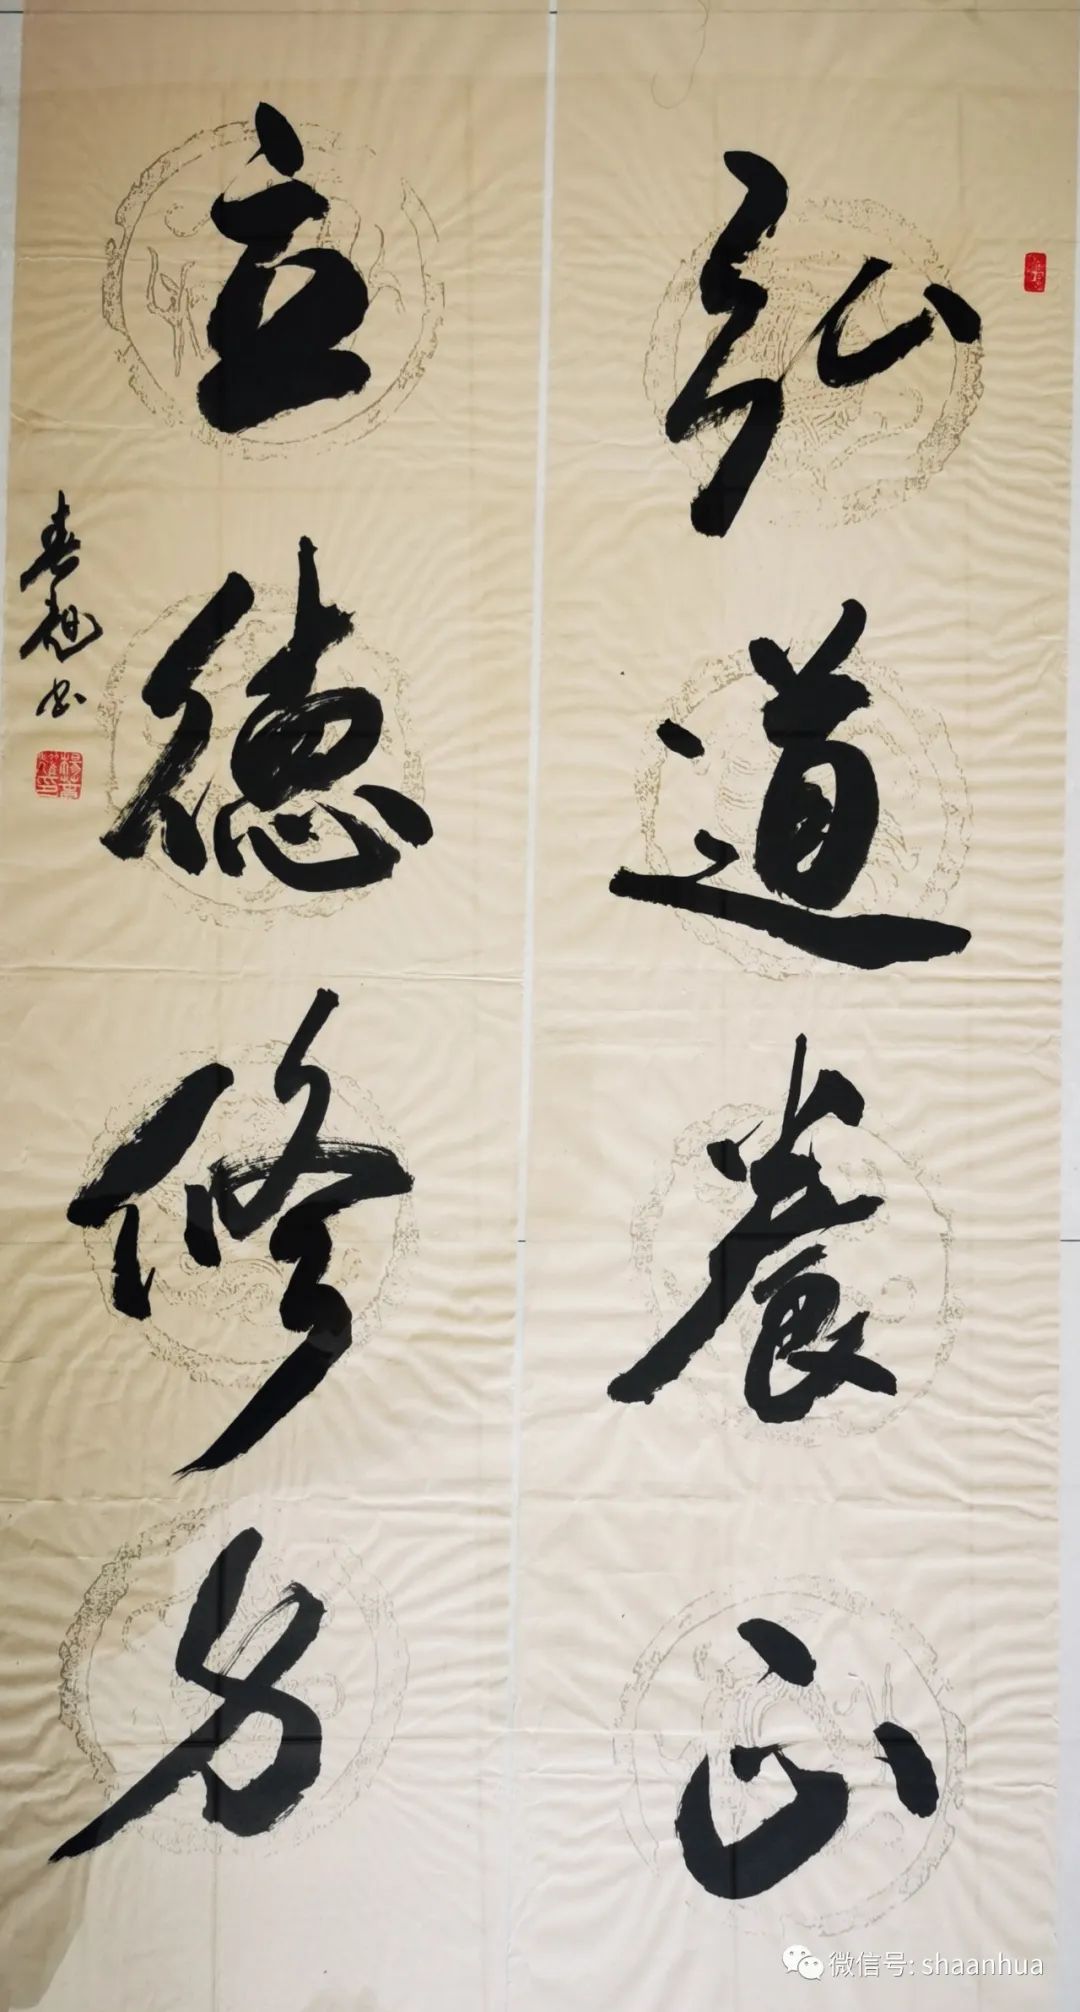 弘道養心
立德修身
春 书
微信号: shaanhua